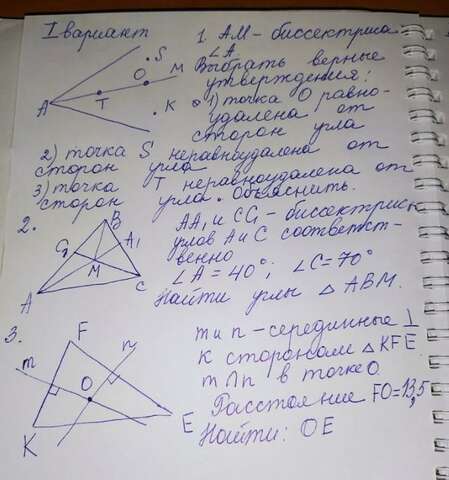 I вариант
1. AM - биссектриса
∠A.
Выбрать верные
утверждения:
1) точка O равно-
удалена от
сторон угла
S
O
M
A
T
K
2) точка S неравноудалена от
сторон угла
3) точка T неравноудалена от
сторон угла. Объяснить.
2.
B
C₁
A₁
M
A
C
AA₁ и CC₁ - биссектрисы
углов A и C соответст-
венно
∠A = 40°; ∠C = 70°
Найти углы △ ABM.
3.
F
n
m
O
K
E
m и n - серединные ⊥
к сторонам △ KFE
m ∩ n в точке O
Расстояние FO = 13,5
Найти: OE